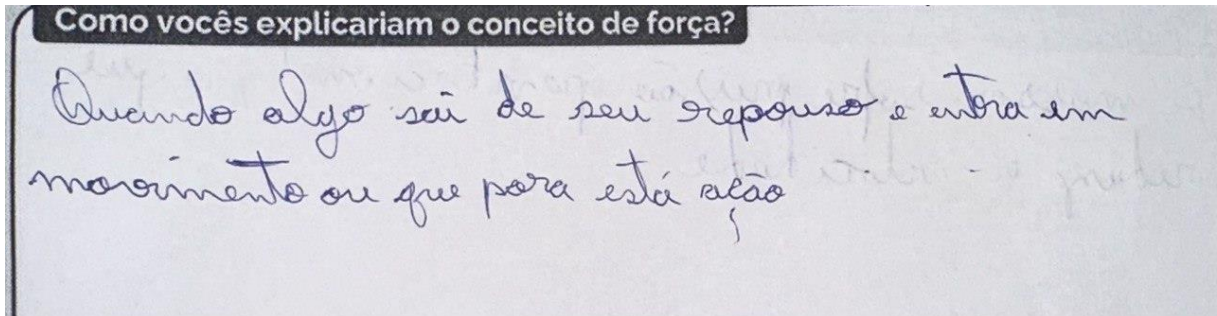 Como vocês explicariam o conceito de força?
Quando algo sai de seu repouso e entra em
movimento ou que para está ação